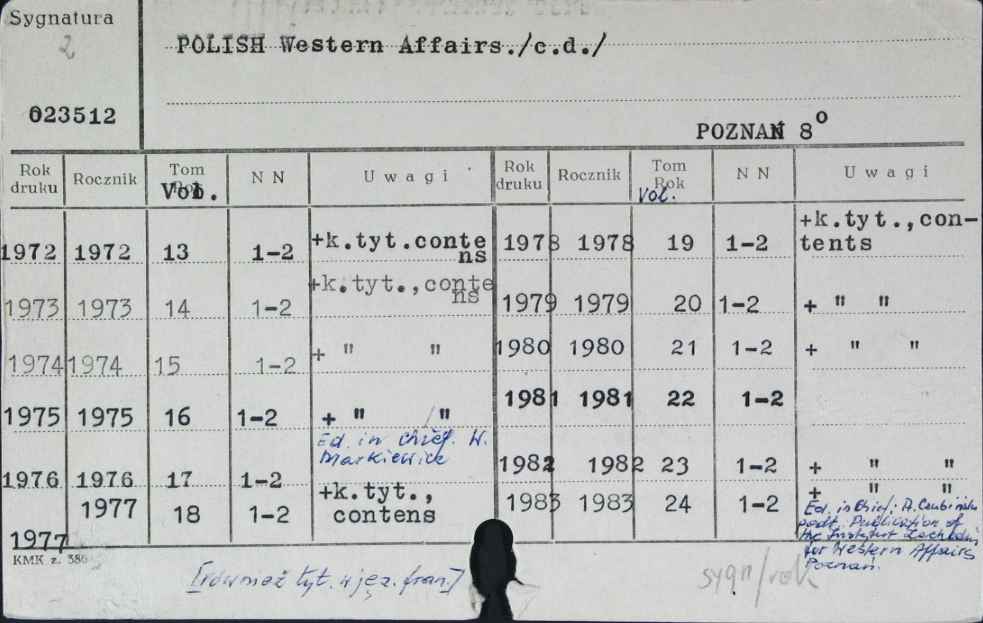 Sygnatura
2
POLISH Western Affairs./c.d./
023512
POZNAŃ 8⁰
Rok druku Rocznik Tom Rok Vol. N N Uwagi Rok druku Rocznik Tom Rok Vol. N N Uwagi
1972 1972 13 1-2 +k.tyt.conte
ns
1973 1973 14 1-2 +k.tyt.,conte
ns
1974 1974 15 1-2 + " "
1975 1975 16 1-2 + " /"
Ed. in chief. W.
Markiewicz
1976 1976 17 1-2
1977 1977 18 1-2 +k.tyt.,
contens
1978 1978 19 1-2 +k.tyt.,con-
tents
1979 1979 20 1-2 + " "
1980 1980 21 1-2 + " "
1981 1981 22 1-2
1982 1982 23 1-2 + " "
1983 1983 24 1-2 + " "
Ed. in Chief: A. Czubiński
podt. Publication of
the Instytut Zachodni,
for Western Affairs
Poznań.
KMK z. 386
[również tyt. w jęz. fran.]
sygn/rok